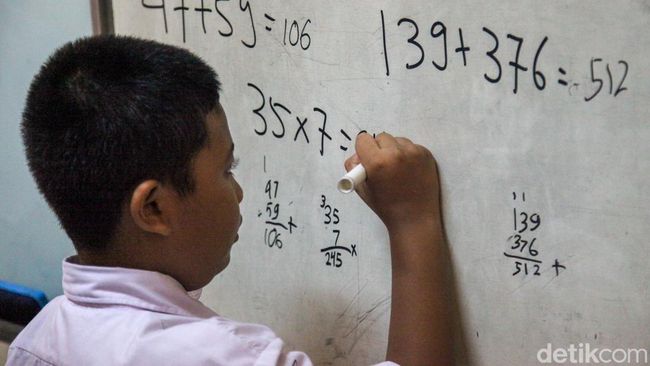 47+59=106
139+376=512
35x7=
1
47
59
106 +
3
35
7
245 x
11
139
376
512 +
detikcom